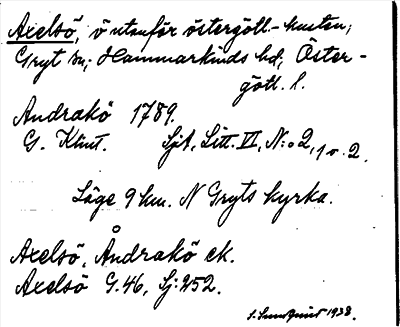 Axelsö, ö utanför östergötl.-kusten;
Gryt sn; Hammarkinds hd; Öster-
götl. l.
Andrakö 1789.
G. Klint. Sjk. Litt. VI, N:o 2, 1 o. 2.
Läge 9 km. N Gryts kyrka.
Axelsö, Åndrakö ek.
Axelsö G.46, Sj: 252.
1938.